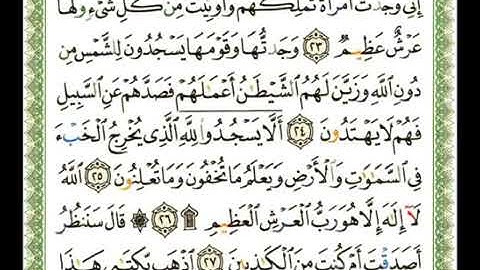 إِنِّي وَجَدتُّ ٱمْرَأَةً تَمْلِكُهُمْ وَأُوتِيَتْ مِن كُلِّ شَىْءٍ وَلَهَا
عَرْشٌ عَظِيمٌ ٢٣ وَجَدتُّهَا وَقَوْمَهَا يَسْجُدُونَ لِلشَّمْسِ مِن
دُونِ ٱللَّهِ وَزَيَّنَ لَهُمُ ٱلشَّيْطَٰنُ أَعْمَٰلَهُمْ فَصَدَّهُمْ عَنِ ٱلسَّبِيلِ
فَهُمْ لَا يَهْتَدُونَ ٢٤ أَلَّا يَسْجُدُوا۟ لِلَّهِ ٱلَّذِى يُخْرِجُ ٱلْخَبْءَ
فِى ٱلسَّمَٰوَٰتِ وَٱلْأَرْضِ وَيَعْلَمُ مَا تُخْفُونَ وَمَا تُعْلِنُونَ ٢٥ ٱللَّهُ
لَآ إِلَٰهَ إِلَّا هُوَ رَبُّ ٱلْعَرْشِ ٱلْعَظِيمِ ۩ ٢٦ ۞ قَالَ سَنَنظُرُ
أَصَدَقْتَ أَمْ كُنتَ مِنَ ٱلْكَٰذِبِينَ ٢٧ ٱذْهَب بِّكِتَٰبِى هَٰذَا